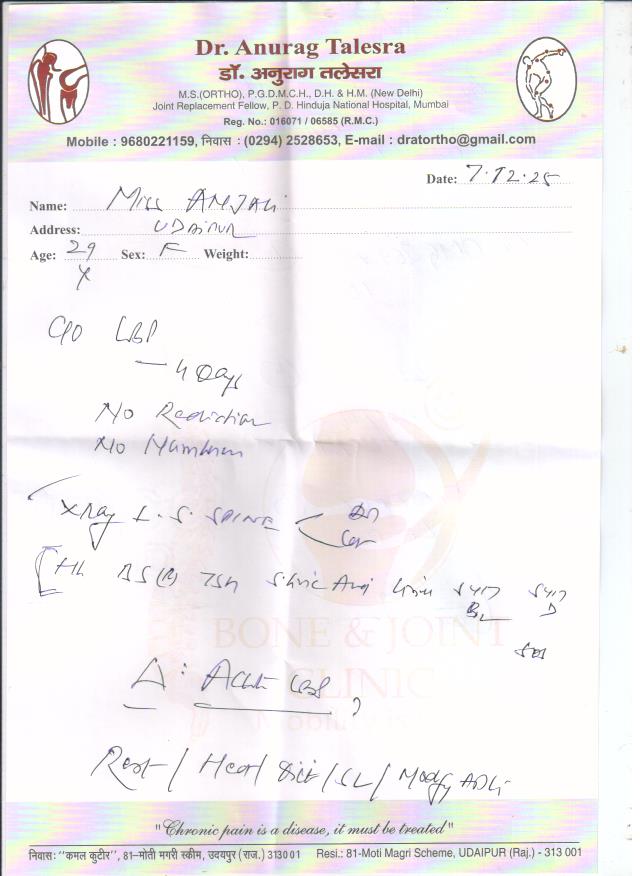 Dr. Anurag Talesra
डॉ. अनुराग तलेसरा
M.S.(ORTHO), P.G.D.M.C.H., D.H. & H.M. (New Delhi)
Joint Replacement Fellow, P. D. Hinduja National Hospital, Mumbai
Reg. No.: 016071 / 06585 (R.M.C.)
Mobile : 9680221159, निवास : (0294) 2528653, E-mail : dratortho@gmail.com
Date: 7.12.25
Name: Miss ANJALI
Address: UDAIPUR
Age: 29 Y Sex: F Weight:
C/O LBP
— 4 Days
No Radiation
No Numbness
X Ray L.S. SPINE AP
Lat
TSH
BONE & JOINT
CLINIC
Δ: Acute LBP ?
Rest / Heat / Diet / SL / Modify ADLs
"Chronic pain is a disease, it must be treated"
निवास: "कमल कुटीर", 81–मोती मगरी स्कीम, उदयपुर (राज.) 313001 Resi.: 81-Moti Magri Scheme, UDAIPUR (Raj.) - 313 001